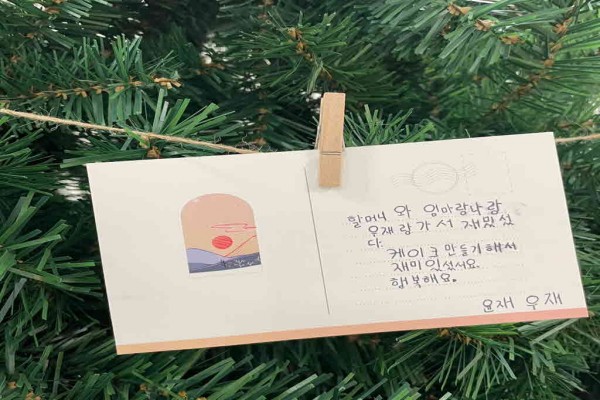 할머니 와 엄마랑나랑
우재랑가서 재밌섰
다.
케이크만들기해서
재미있섰서요.
행복해요.
윤재 우재